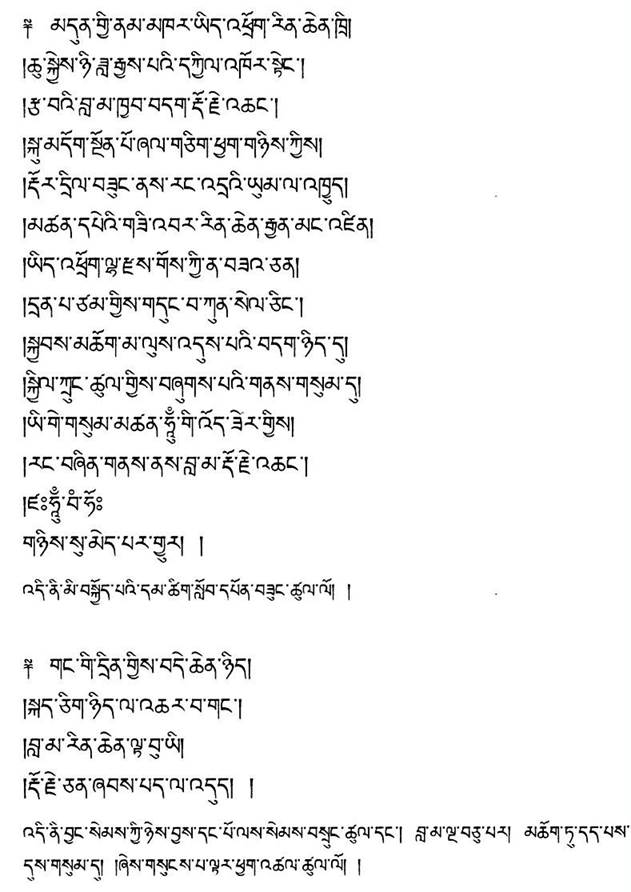 ༈ མདུན་གྱི་ནམ་མཁར་ཡིད་འཕྲོག་རིན་ཆེན་ཁྲི།
།ཆུ་སྐྱེས་ཉི་ཟླ་རྒྱས་པའི་དཀྱིལ་འཁོར་སྟེང་།
།རྩ་བའི་བླ་མ་ཁྱབ་བདག་རྡོ་རྗེ་འཆང་།
།སྐུ་མདོག་སྔོན་པོ་ཞལ་གཅིག་ཕྱག་གཉིས་ཀྱིས།
།རྡོར་དྲིལ་བཟུང་ནས་རང་འདྲའི་ཡུམ་ལ་འཁྱུད།
།མཚན་དཔེའི་གཟི་འབར་རིན་ཆེན་རྒྱན་མང་འཛིན།
།ཡིད་འཕྲོག་ལྷ་རྫས་གོས་ཀྱི་ན་བཟའ་ཅན།
།དྲན་པ་ཙམ་གྱིས་གདུང་བ་ཀུན་སེལ་ཅིང་།
།སྐྱབས་མཆོག་མ་ལུས་འདུས་པའི་བདག་ཉིད་དུ།
།སྐྱིལ་ཀྲུང་ཚུལ་གྱིས་བཞུགས་པའི་གནས་གསུམ་དུ།
།ཡི་གེ་གསུམ་མཚན་ཧཱུྃ་གི་འོད་ཟེར་གྱིས།
།རང་བཞིན་གནས་ནས་བླ་མ་རྡོ་རྗེ་འཆང་།
།ཛཿཧཱུྃ་བཾ་ཧོཿ
གཉིས་སུ་མེད་པར་གྱུར། །
འདི་ནི་མི་བསྐྱོད་པའི་དམ་ཚིག་སློབ་དཔོན་བཟུང་ཚུལ་ལོ། །
༈ གང་གི་དྲིན་གྱིས་བདེ་ཆེན་ཉིད།
།སྐད་ཅིག་ཉིད་ལ་འཆར་བ་གང་།
།བླ་མ་རིན་ཆེན་ལྟ་བུ་ཡི།
།རྡོ་རྗེ་ཅན་ཞབས་པད་ལ་འདུད། །
འདི་ནི་བྱང་སེམས་ཀྱི་ཉེས་བྱས་དང་པོ་ལས་སེམས་བསྲུང་ཚུལ་དང་། བླ་མ་ལྔ་བཅུ་པར། མཆོག་ཏུ་དད་པས་
དུས་གསུམ་དུ། །ཞེས་གསུངས་པ་ལྟར་ཕྱག་འཚལ་ཚུལ་ལོ། །